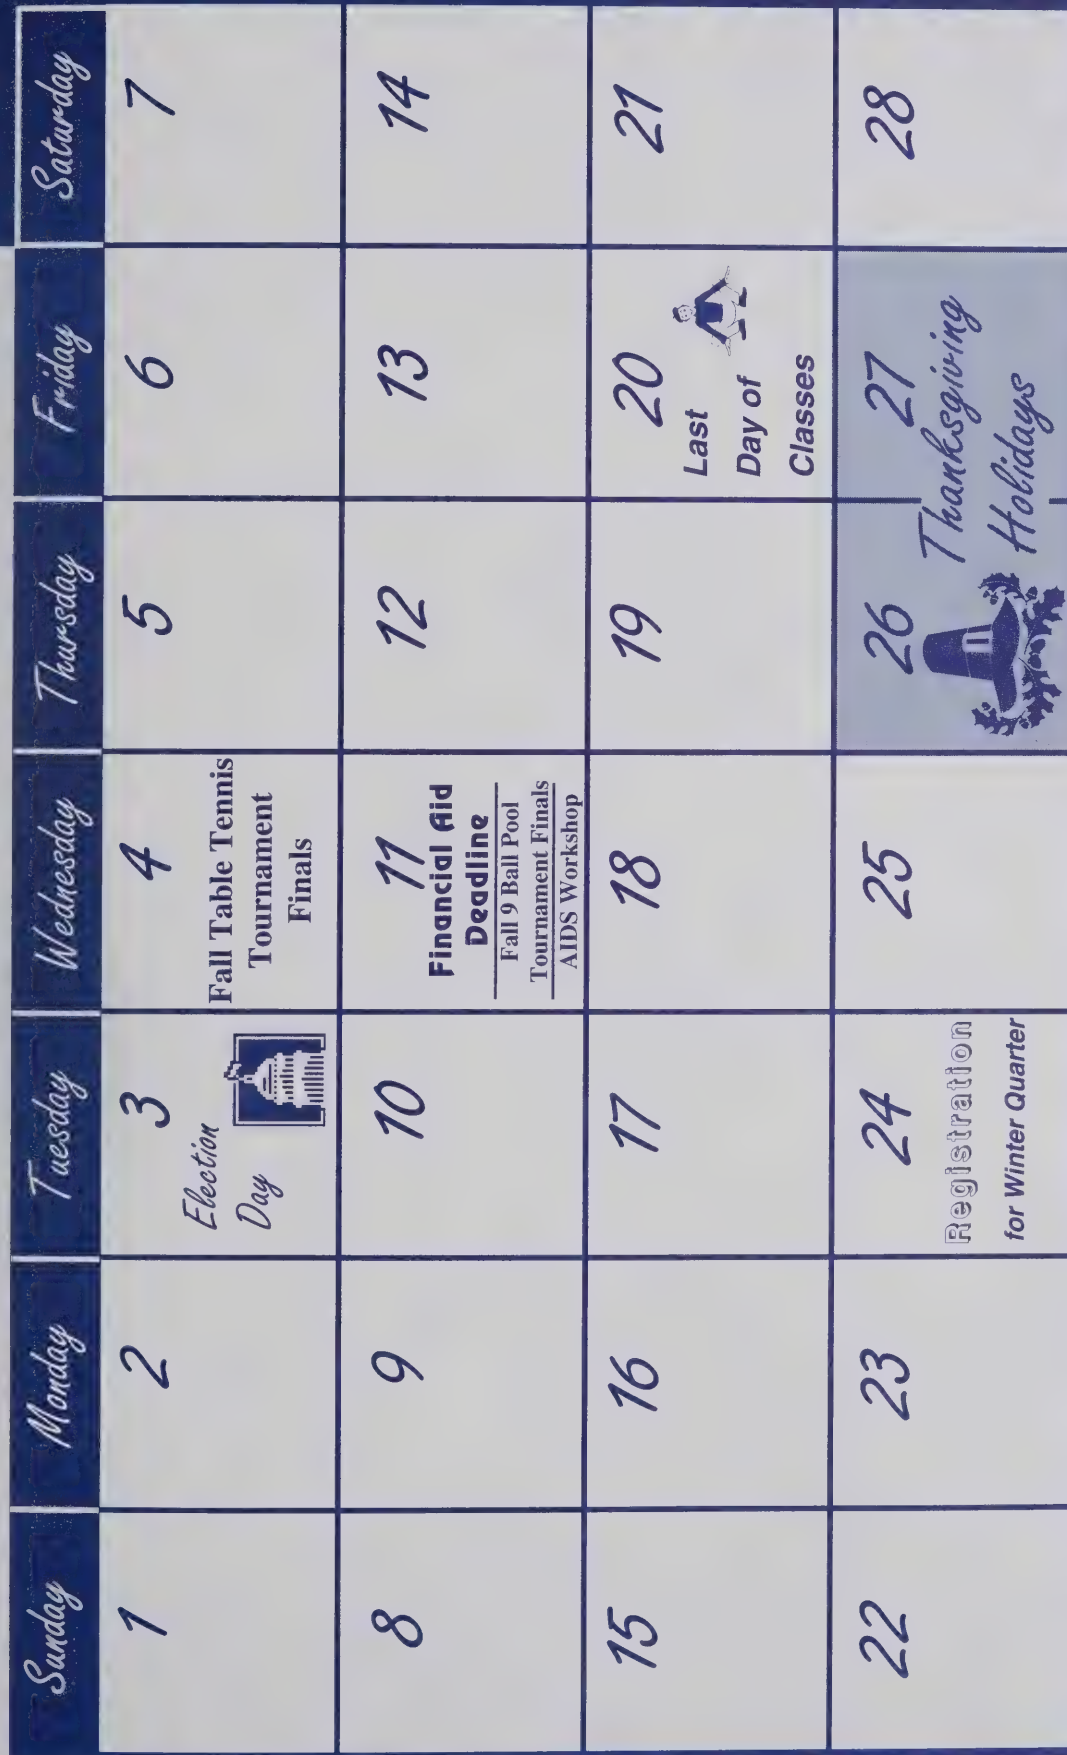 Sunday
Monday
Tuesday
Wednesday
Thursday
Friday
Saturday
1
2
3
Election
Day
4
Fall Table Tennis
Tournament
Finals
5
6
7
8
9
10
11
Financial Aid
Deadline
Fall 9 Ball Pool
Tournament Finals
AIDS Workshop
12
13
14
15
16
17
18
19
20
Last
Day of
Classes
21
22
23
24
Registration
for Winter Quarter
25
26
27
Thanksgiving
Holidays
28